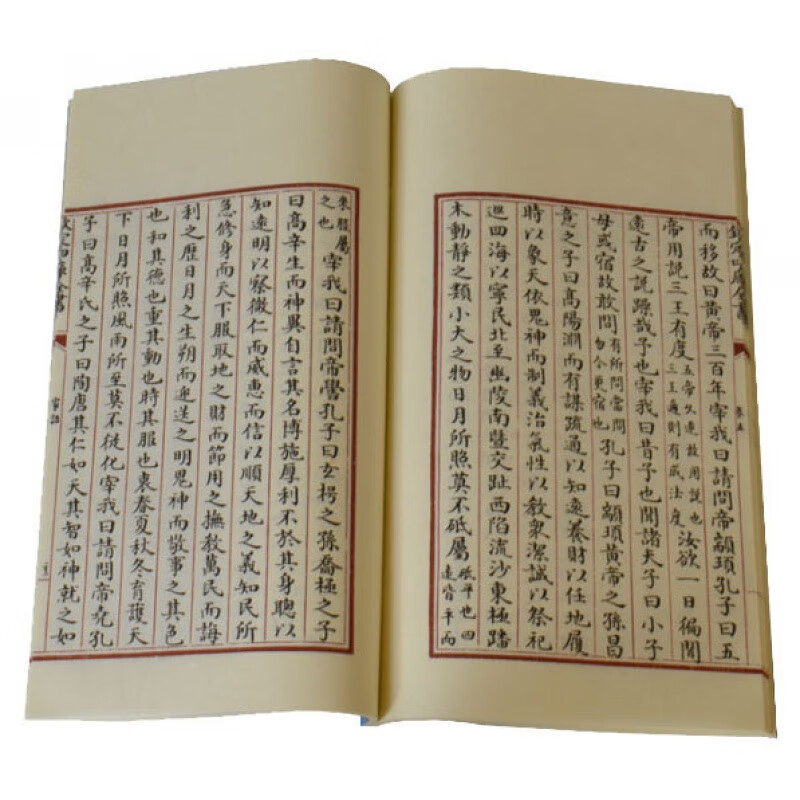 欽定四庫全書
卷五
而移故曰黃帝三百年宰我曰請問帝顓頊孔子曰五
帝用說三王有度五帝久遠故用說也三王邇則有成法度汝欲一日徧聞
遠古之說躁哉予也宰我曰昔予也聞諸夫子曰小子
毋或宿故敢問有所問當問勿令更宿也孔子曰顓頊黃帝之孫昌
意之子曰高陽淵而有謀疏通以知遠養財以任地履
時以象天依鬼神而制義治氣性以教衆潔誠以祭祀
廵四海以寧民北至幽陵南暨交趾西陷流沙東極蹯
木動靜之類小大之物日月所照莫不砥屬砥平也四遠皆平而
來服屬之也宰我曰請問帝嚳孔子曰玄枵之孫喬極之子
曰高辛生而神異自言其名博施厚利不於其身聰以
知遠明以察微仁而威惠而信以順天地之義知民所
急修身而天下服取地之財而節用之撫敎萬民而誨
利之歷日月之生朔而迎送之明鬼神而敬事之其色
也和其德也重其動也時其服也衷春夏秋冬育護天
下日月所照風雨所至莫不從化宰我曰請問帝堯孔
子曰高辛氏之子曰陶唐其仁如天其智如神就之如
家語